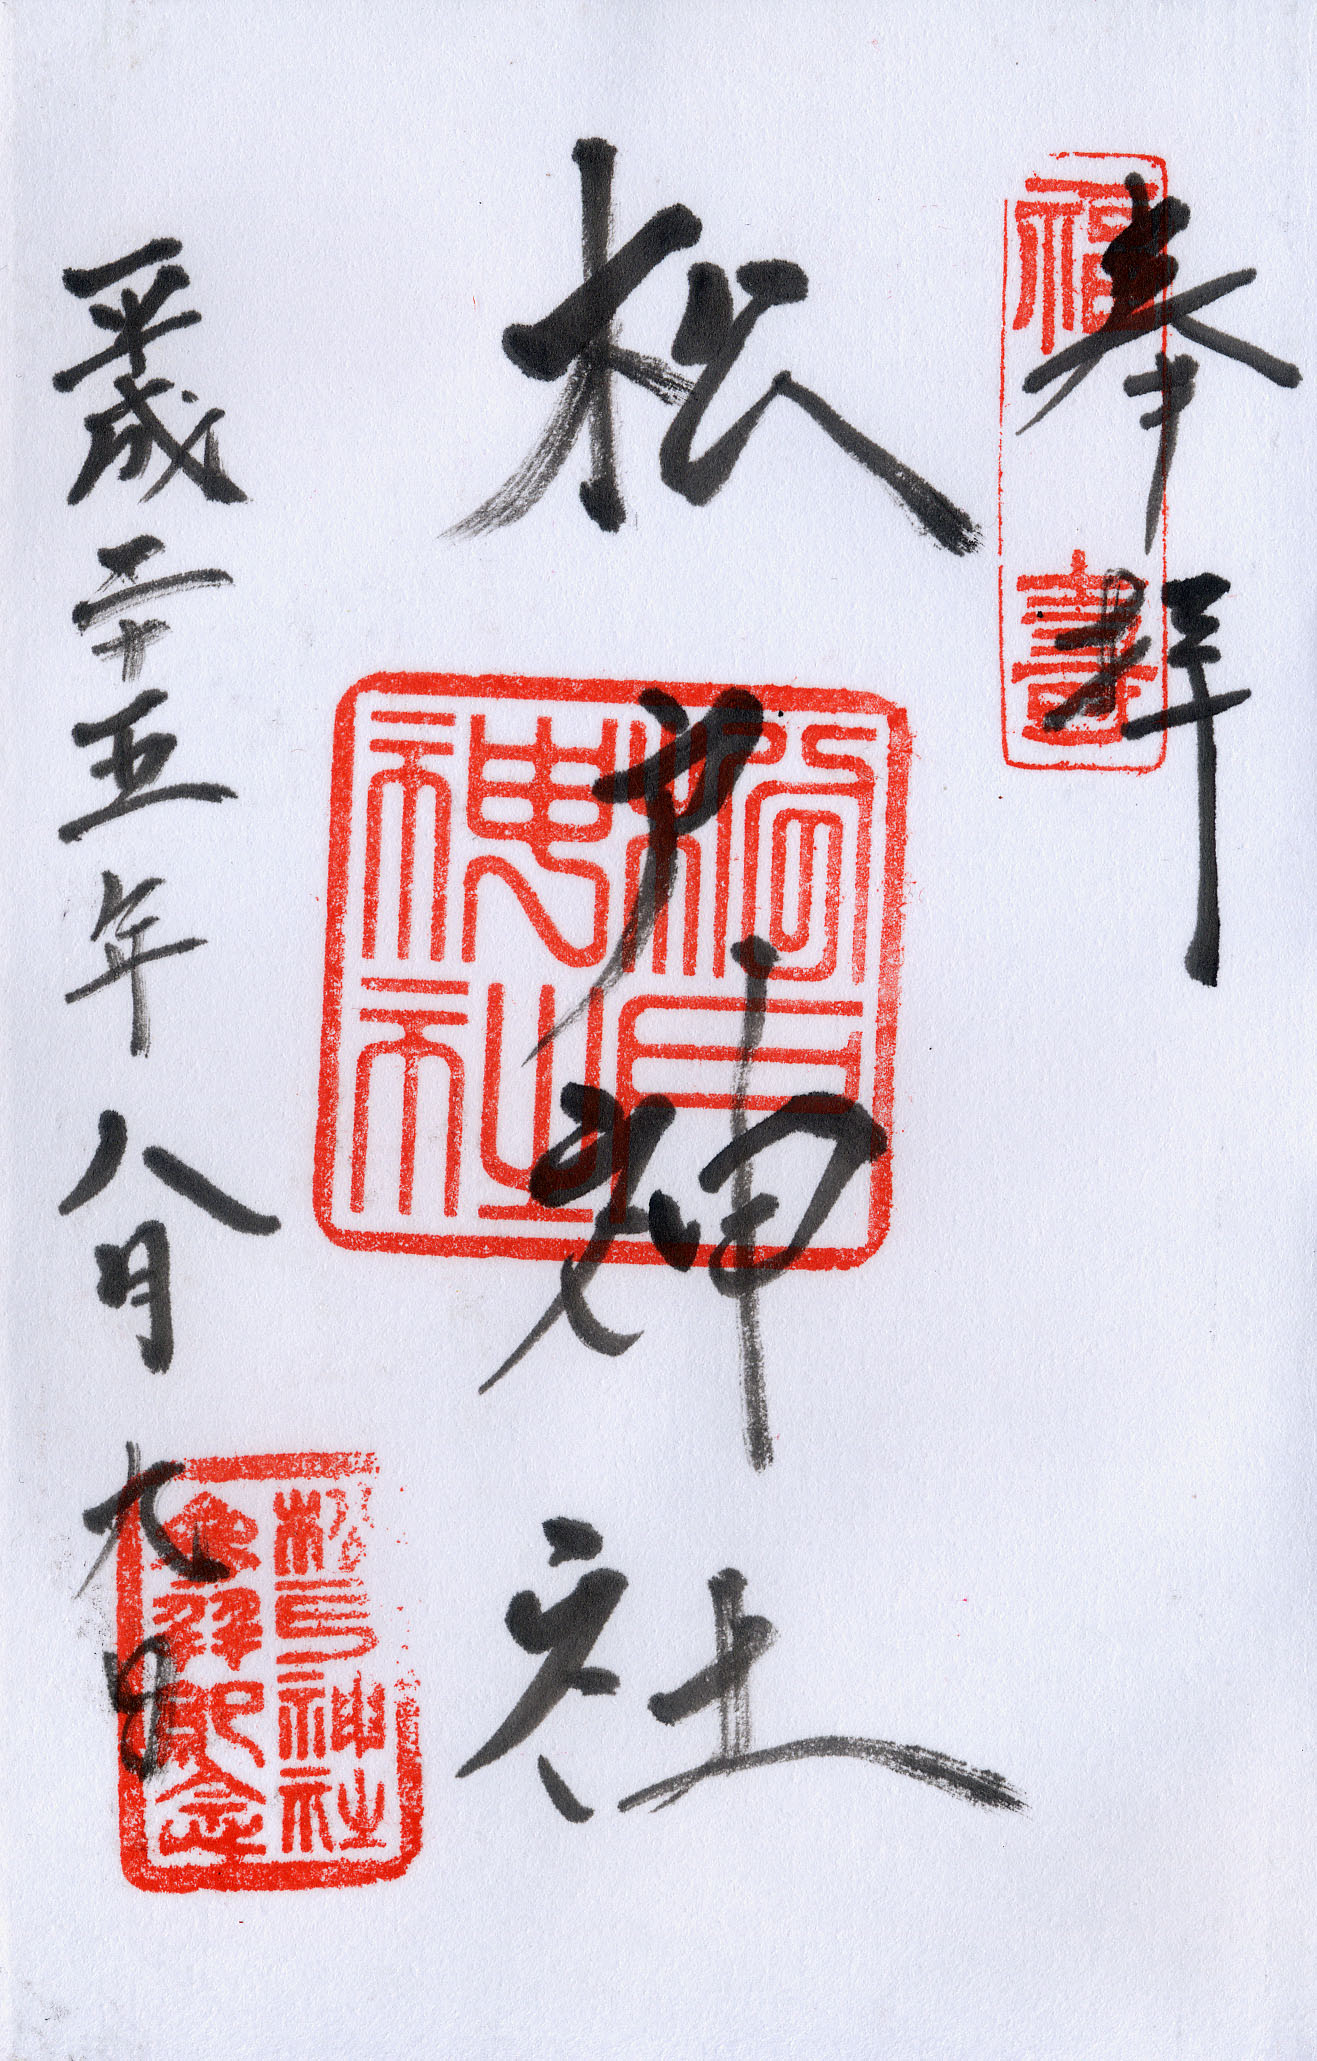 奉拝
福壽
松戸神社
松戸神社
平成二十五年八月九日
松戸神社
参拝記念